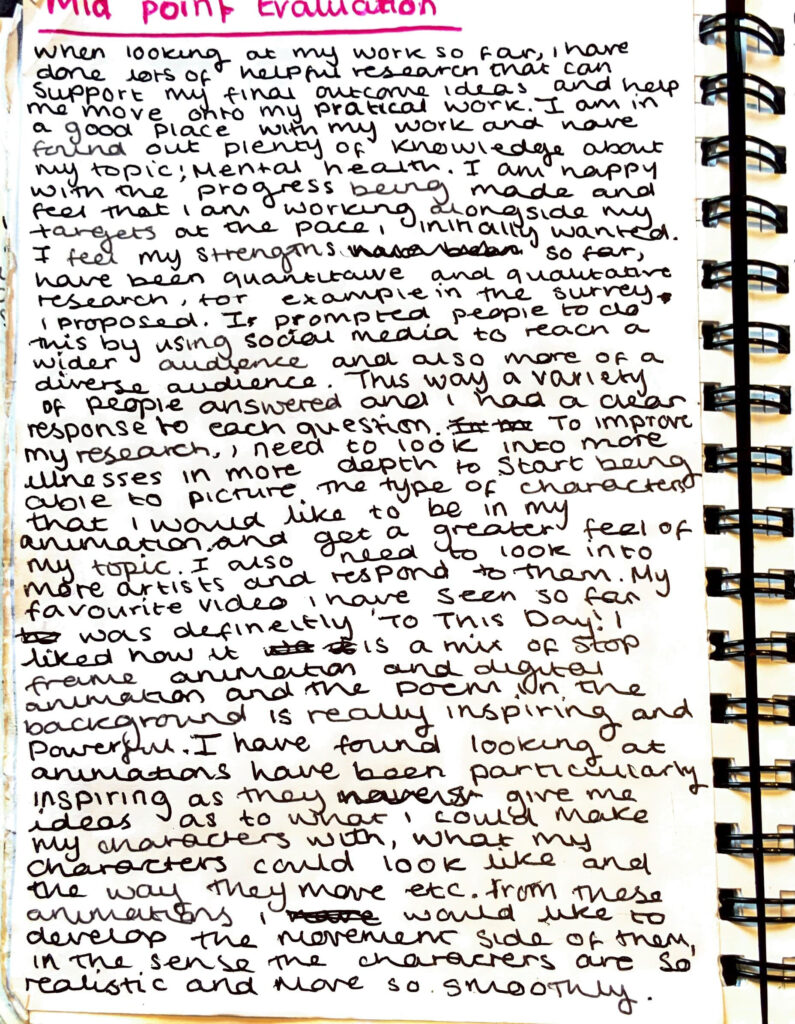 Mid Point Evaluation
when looking at my work so far, i have
done lots of helpful research that can
support my final outcome ideas and help
me move onto my pratical work. I am in
a good place with my work and have
found out plenty of knowledge about
my topic; Mental health. I am happy
with the progress being made and
feel that I am working alongside my
targets at the pace, i initially wanted.
I feel my strengths so far,
have been quantitative and qualitative
research, for example in the survey
i proposed. I prompted people to do
this by using social media to reach a
wider audience and also more of a
diverse audience. This way a variety
of people answered and i had a clear
response to each question. To improve
my research, i need to look into more
illnesses in more depth to start being
able to picture the type of characters
that I would like to be in my
animation and get a greater feel of
my topic. I also need to look into
more artists and respond to them. My
favourite video i have seen so far
was defineitly 'To This Day'. I
liked how it is a mix of stop
frame animation and digital
animation and the poem in the
background is really inspiring and
powerful. I have found looking at
animations have been particularly
inspiring as they give me
ideas as to what i could make
my characters with, what my
characters could look like and
the way they move etc. From these
animations i would like to
develop the movement side of them,
in the sense the characters are so
realistic and move so smoothly.